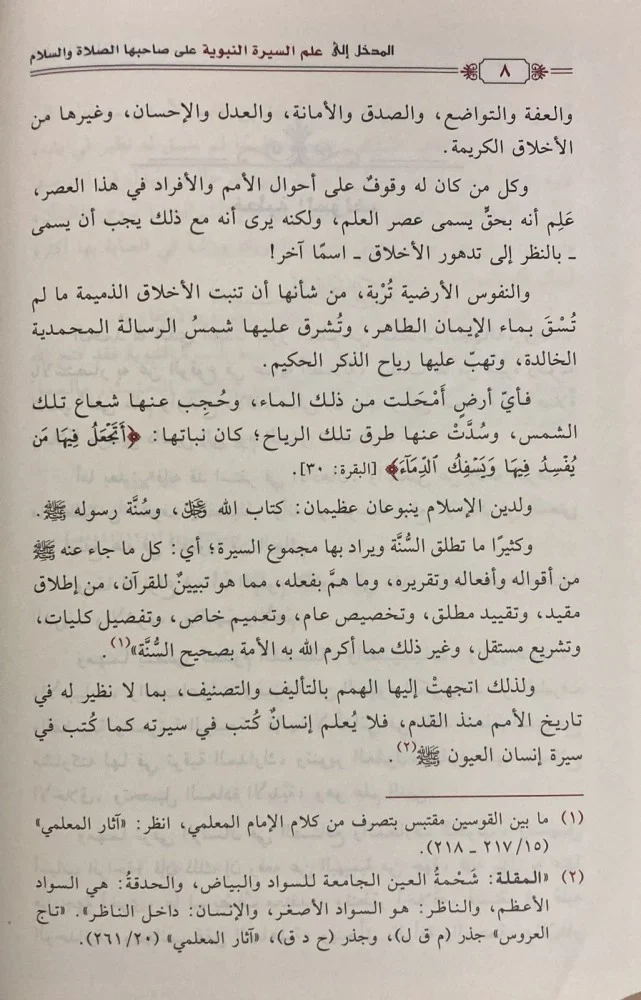 المدخل إلى علم السيرة النبوية على صاحبها الصلاة والسلام
٨
والعفة والتواضع، والصدق والأمانة، والعدل والإحسان، وغيرها من
الأخلاق الكريمة.
وكل من كان له وقوفٌ على أحوال الأمم والأفراد في هذا العصر،
عَلِم أنه بحقٍّ يسمى عصر العلم، ولكنه يرى أنه مع ذلك يجب أن يسمى
ـ بالنظر إلى تدهور الأخلاق ـ اسمًا آخر!
والنفوس الأرضية تُرْبة، من شأنها أن تنبت الأخلاق الذميمة ما لم
تُسْقَ بماء الإيمان الطاهر، وتُشرق عليها شمسُ الرسالة المحمدية
الخالدة، وتهبّ عليها رياح الذكر الحكيم.
فأيّ أرضٍ أَمْحَلت من ذلك الماء، وحُجِب عنها شعاع تلك
الشمس، وسُدَّتْ عنها طرق تلك الرياح؛ كان نباتها: ﴿أَتَجْعَلُ فِيهَا مَن
يُفْسِدُ فِيهَا وَيَسْفِكُ ٱلدِّمَآءَ﴾ [البقرة: ٣٠].
ولدين الإسلام ينبوعان عظيمان: كتاب الله عَزَّوَجَلَّ، وسُنَّة رسوله ﷺ.
وكثيرًا ما تطلق السُّنَّة ويراد بها مجموع السيرة؛ أي: كل ما جاء عنه ﷺ
من أقواله وأفعاله وتقريره، وما همَّ بفعله، مما هو تبيينٌ للقرآن، من إطلاق
مقيد، وتقييد مطلق، وتخصيص عام، وتعميم خاص، وتفصيل كليات،
وتشريع مستقل، وغير ذلك مما أكرم الله به الأمة بصحيح السُّنَّة»(١).
ولذلك اتجهتْ إليها الهمم بالتأليف والتصنيف، بما لا نظير له في
تاريخ الأمم منذ القدم، فلا يُعلم إنسانٌ كُتب في سيرته كما كُتب في
سيرة إنسان العيون ﷺ(٢).
(١) ما بين القوسين مقتبس بتصرف من كلام الإمام المعلمي، انظر: «آثار المعلمي»
(١٥/ ٢١٧ ـ ٢١٨).
(٢) «المقلة: شَحْمةُ العين الجامعة للسواد والبياض، والحدقةُ: هي السواد
الأعظم، والناظر: هو السواد الأصغر، والإنسان: داخل الناظر». «تاج
العروس» جذر (م ق ل)، وجذر (ح د ق)، «آثار المعلمي» (٢٠/ ٢٦١).